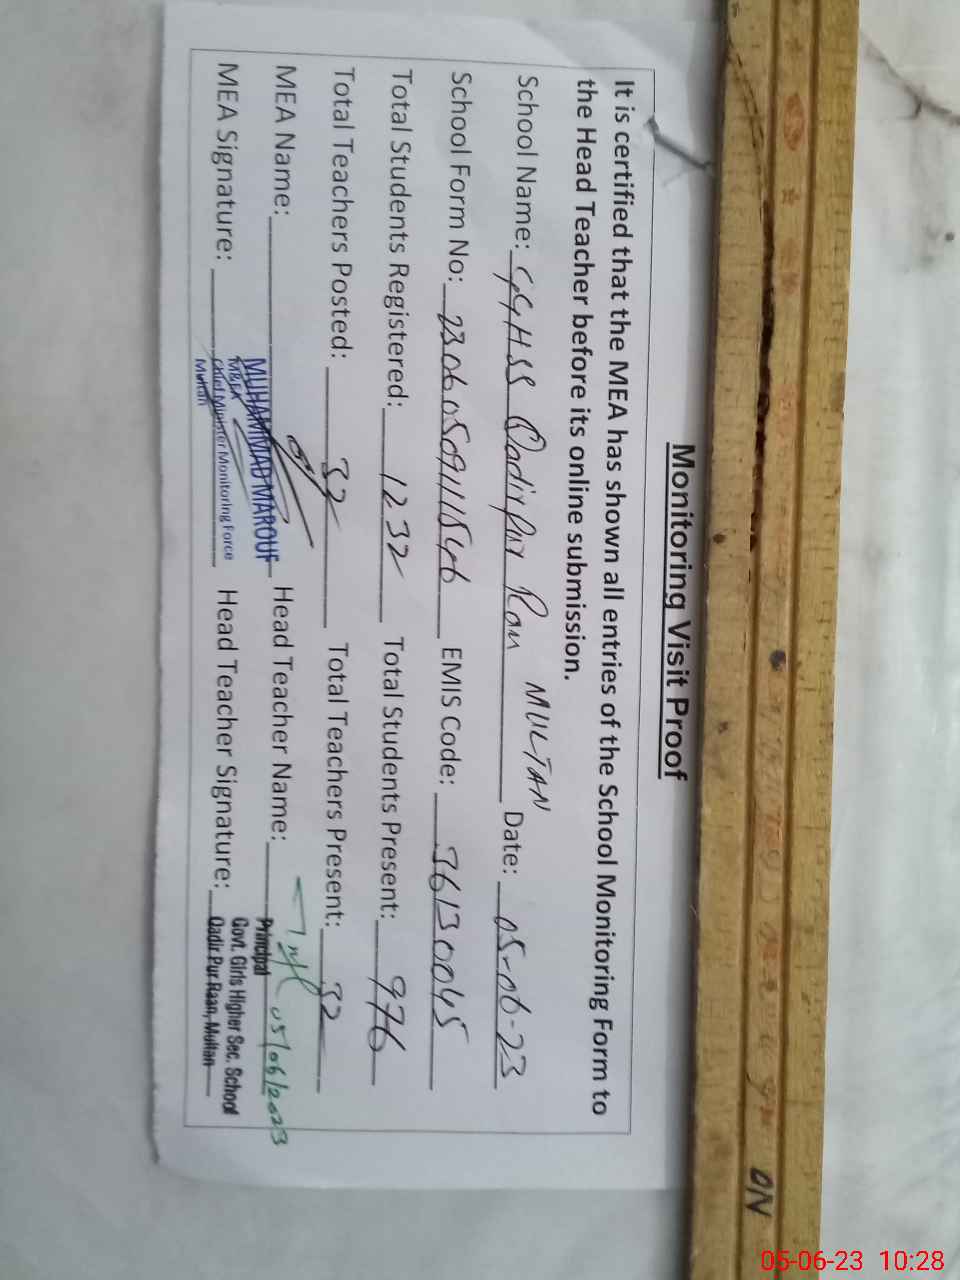 Monitoring Visit Proof
It is certified that the MEA has shown all entries of the School Monitoring Form to
the Head Teacher before its online submission.
School Name: GGHSS Qadirpur Ran MULTAN Date: 05-06-23
School Form No: EMIS Code: 36130045
Total Students Registered: 1232 Total Students Present: 976
Total Teachers Posted: 32 Total Teachers Present: 32
MEA Name: MUHAMMAD MAROUF Head Teacher Name: 05/06/2023
MEA Signature: Head Teacher Signature:
M&EA
Chief Minister Monitoring Force
Multan
Principal
Govt. Girls Higher Sec. School
Qadir Pur Raan, Multan
NO
05-06-23 10:28